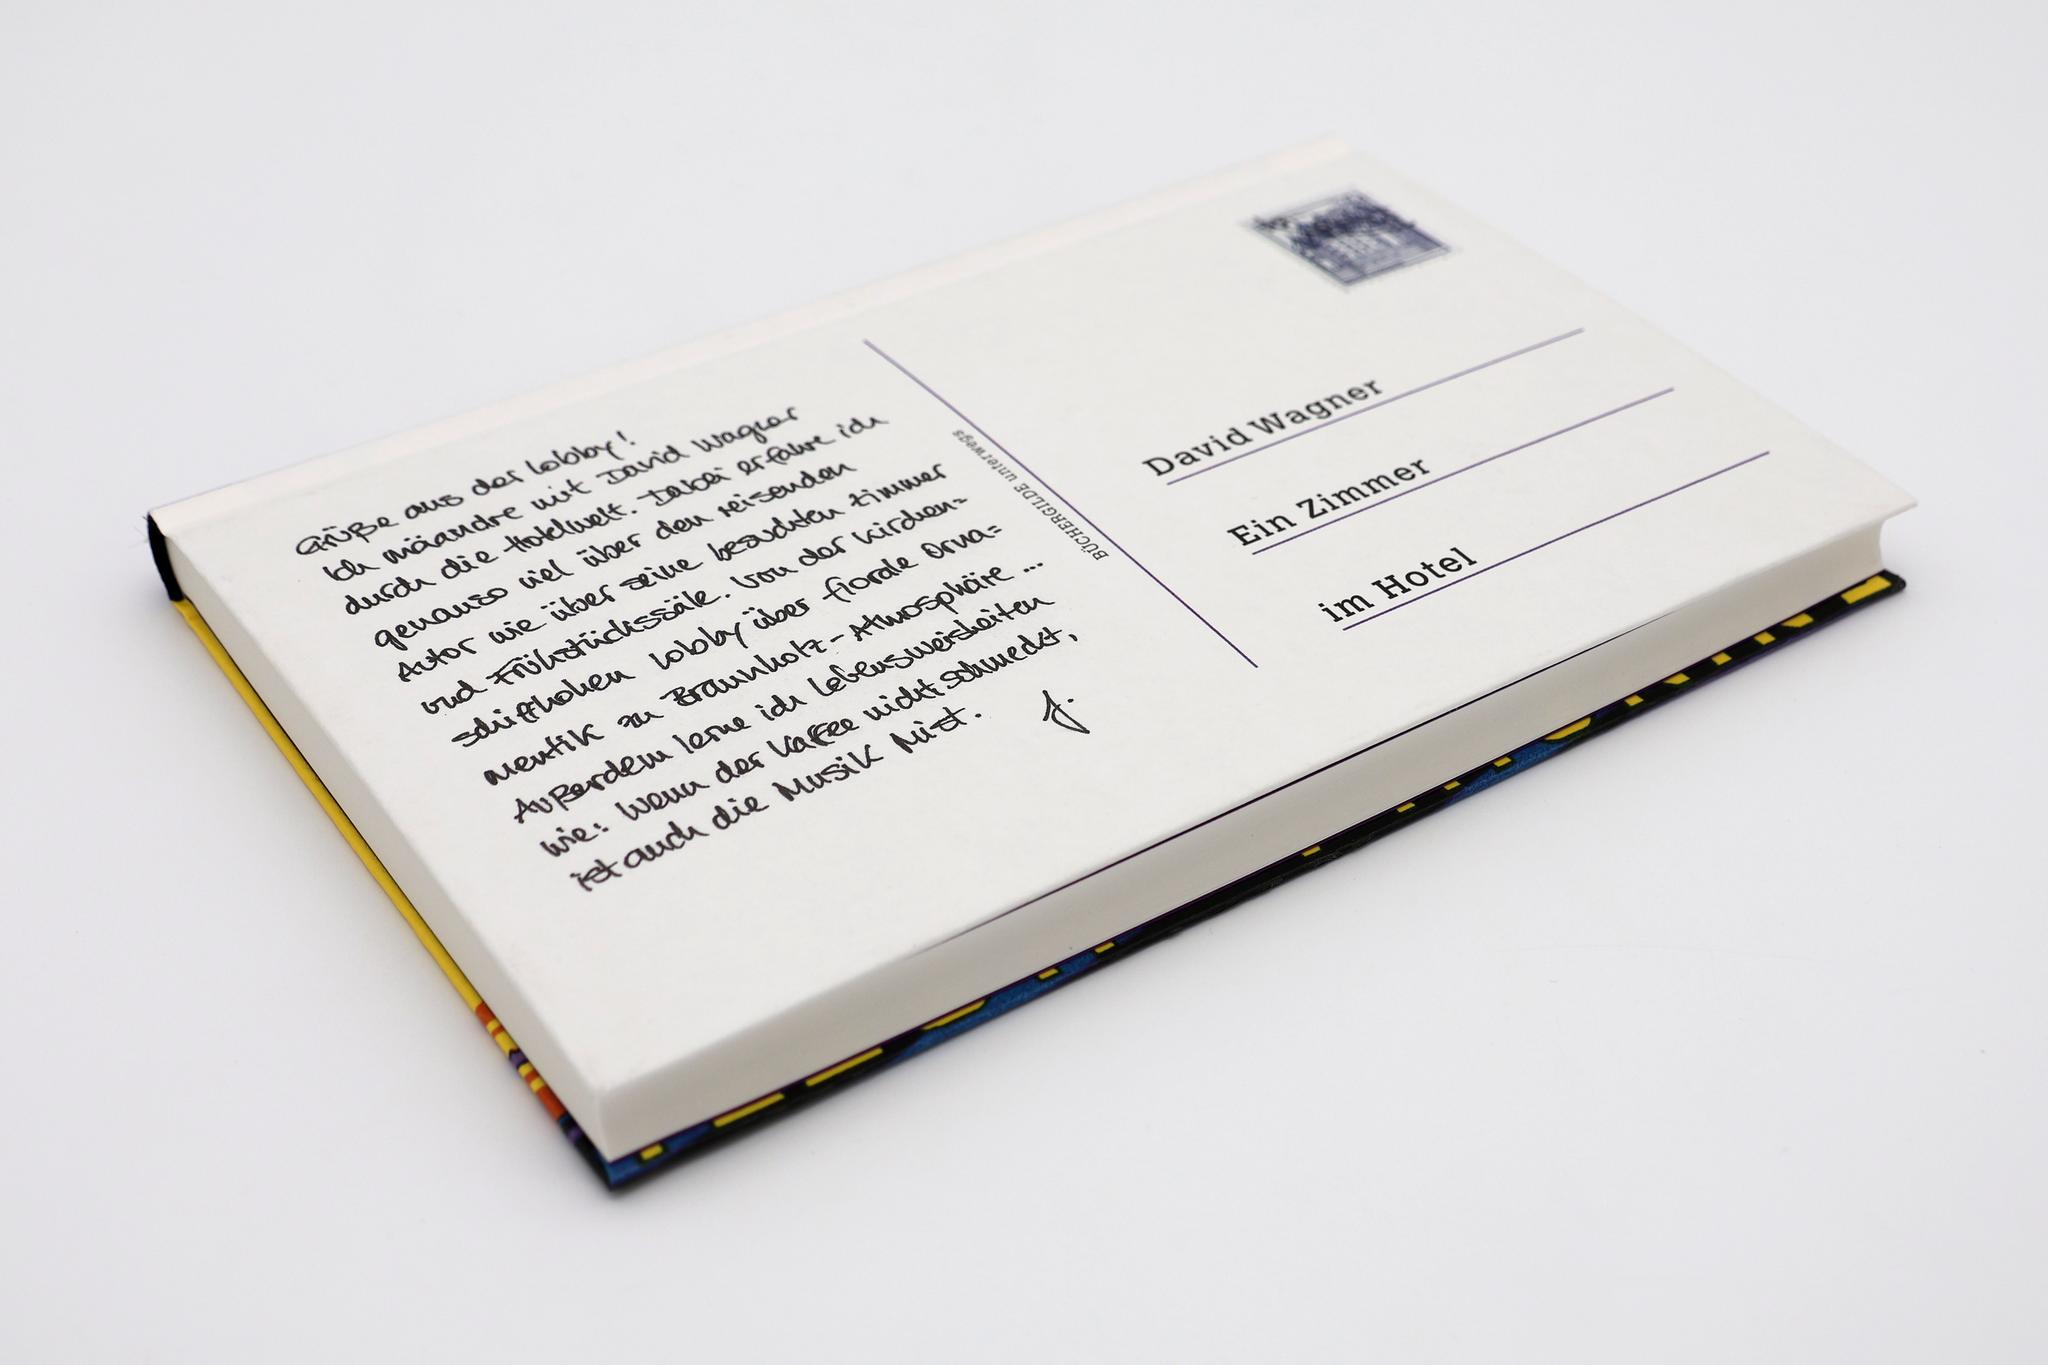 Grüße aus der Lobby!
Ich mäandre mit David Wagner
durch die Hotelwelt. Dabei erfahre ich
genauso viel über den reisenden
Autor wie über seine besuchten Zimmer
und Frühstückssäle. Von der kirchen=
schiffhohen Lobby über florale Orna=
mentik zu Braunholz-Atmosphäre ...
Außerdem lerne ich Lebensweisheiten
wie: Wenn der Kaffee nicht schmeckt,
ist auch die Musik Mist. J.
BÜCHERGILDE unterwegs
David Wagner
Ein Zimmer
im Hotel